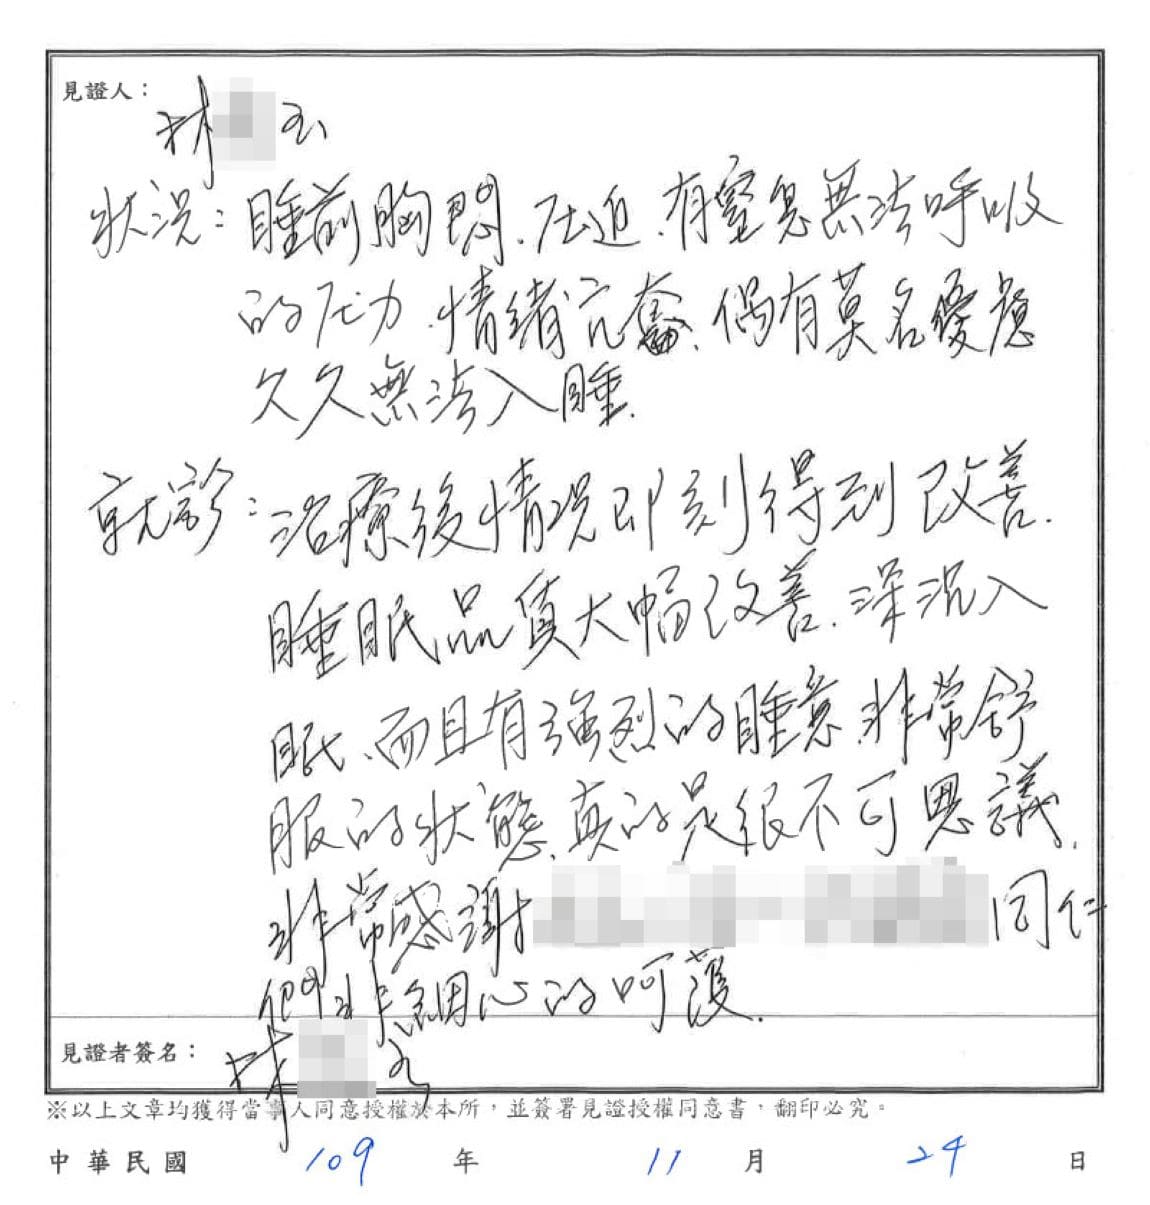 見證人：
林 玉
狀況：睡前胸悶、压迫、有窒息無法呼吸
的压力、情緒亢奮、偶有莫名憂慮
久久無法入睡.
就診：治療後情況即刻得到改善.
睡眠品質大幅改善、深沉入
眠、而且有強烈的睡意、非常舒
服的狀態、真的是很不可思議.
非常感謝 同仁
們 細心的呵護.
見證者簽名： 林 玉
※以上文章均獲得當事人同意授權於本所，並簽署見證授權同意書，翻印必究。
中華民國 109 年 11 月 24 日